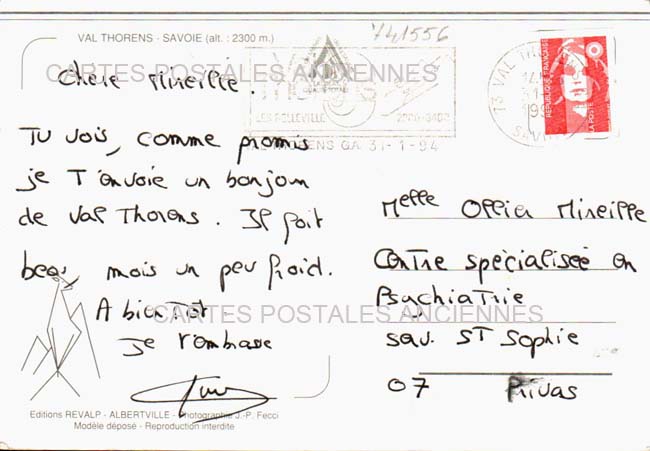 741556
VAL THORENS - SAVOIE (alt. : 2300 m.)
CARTES POSTALES ANCIENNES
Chère Mireille.
LES BELLEVILLE 2300-3400
VAL THORENS GA 31-1-94
73 VAL THORENS
SAVOIE
REPUBLIQUE FRANÇAISE
LA POSTE
Tu vois, comme promis
je t'envoie un bonjour
de Val Thorens. Il fait
beau, mais un peu froid.
A bientôt.
Je t'embrasse
Melle Ollier Mireille
Centre spécialisée en
Psychiatrie
CARTES POSTALES ANCIENNES
sav. ST Sophie
07 Privas
Editions REVALP - ALBERTVILLE - Photographie J.-P. Fecci
Modèle déposé - Reproduction interdite